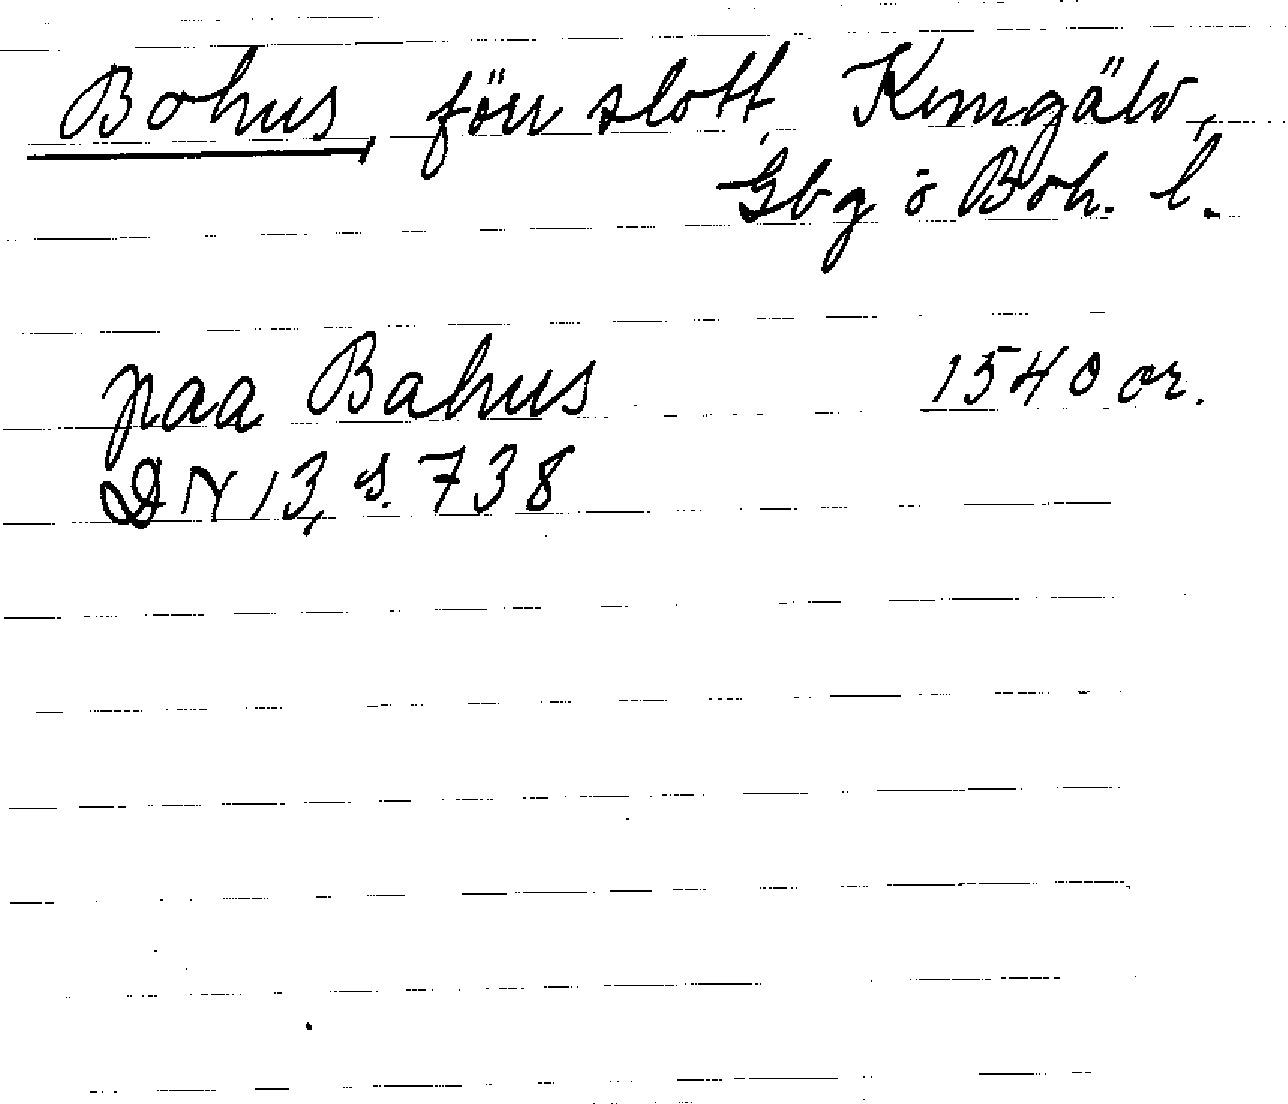 Bohus, förr slott, Kungälv,
Gbg o Boh. l.
paa Bahus 1540 or.
DN 13, s. 738